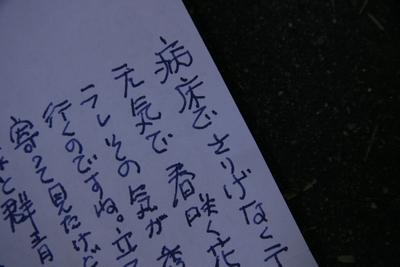 病床でさりげなく
元気で 春咲く花
ラしその気が
行くのですね。立
寄って見たけど
と群青